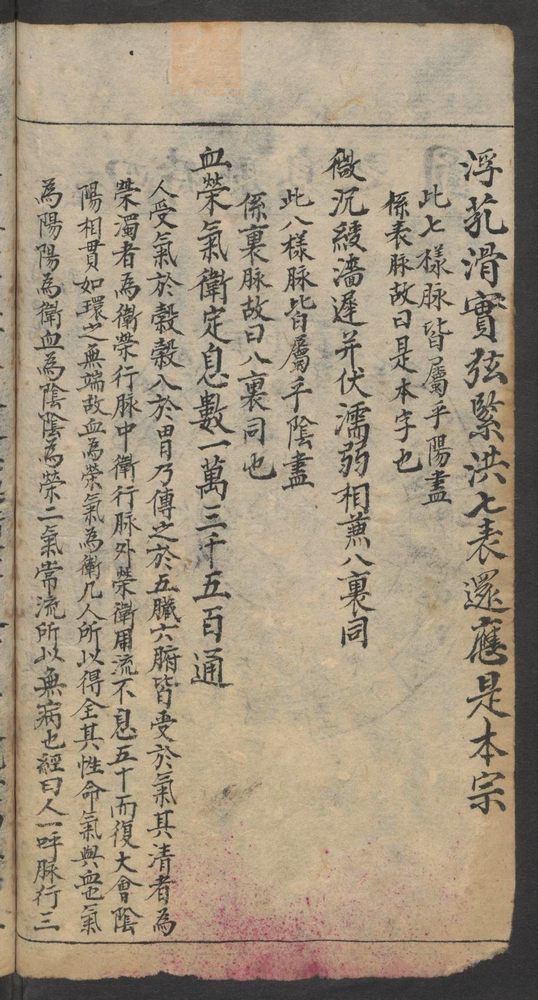 浮芤滑實弦緊洪七表還應是本宗
此七樣脉皆屬乎陽盡
係表脉故曰是本字也
微沉緩濇遲并伏濡弱相蒹八裏同
此八樣脉皆屬乎陰盡
係裏脉故曰八裏同也
血榮氣衛定息數一萬三千五百通
人受氣於穀穀入於胃乃傳之於五臟六腑皆受於氣其清者為
榮濁者為衛榮行脉中衛行脉外榮衛用流不息五十而復大會陰
陽相貫如環之無端故血為榮氣為衛凡人所以得全其性命氣與血也氣
為陽陽為衛血為陰陰為榮二氣常流所以無病也經曰人一呼脉行三